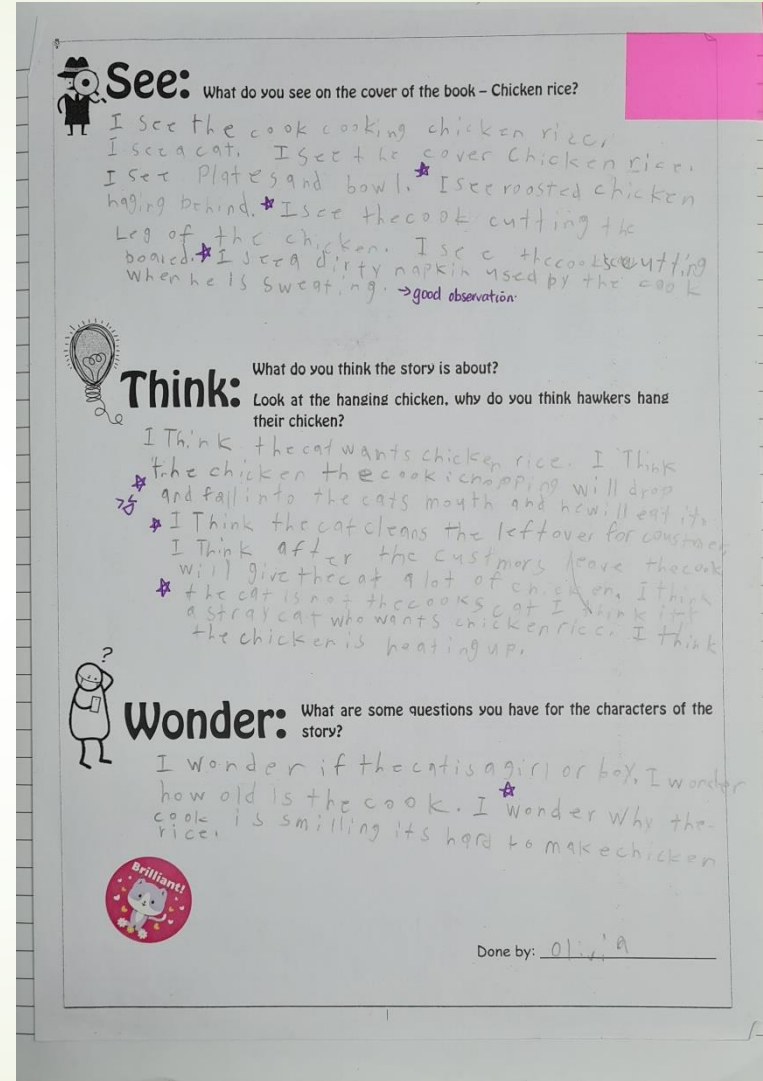 See: What do you see on the cover of the book – Chicken rice?
I see the cook cooking chicken rice,
I see a cat. I see the cover Chicken rice.
I see Plates and bowl. I see roosted chicken
haging behind. I see the cook cutting the
Leg of the chicken. I see the cook cutting
boared. I see a dirty napkin used by the cook
when he is sweating. → good observation.
What do you think the story is about?
Think: Look at the hanging chicken, why do you think hawkers hang
their chicken?
I Think the cat wants chicken rice. I Think
the chicken the cook i chopping will drop
and fall into the cats mouth and he will eat it.
I Think the cat cleans the leftover for coustmer
I Think after the custmors leave the cook
will give the cat a lot of chicken. I think
the cat is not the cooks cat I think it
a stray cat who wants chicken rice. I think
the chicken is heating up.
?
Wonder: What are some questions you have for the characters of the
story?
I wonder if the cat is a girl or boy. I wonder
how old is the cook. I wonder why the
cook is smilling its hard to make chicken
rice.
Brilliant!
Done by: Olivia